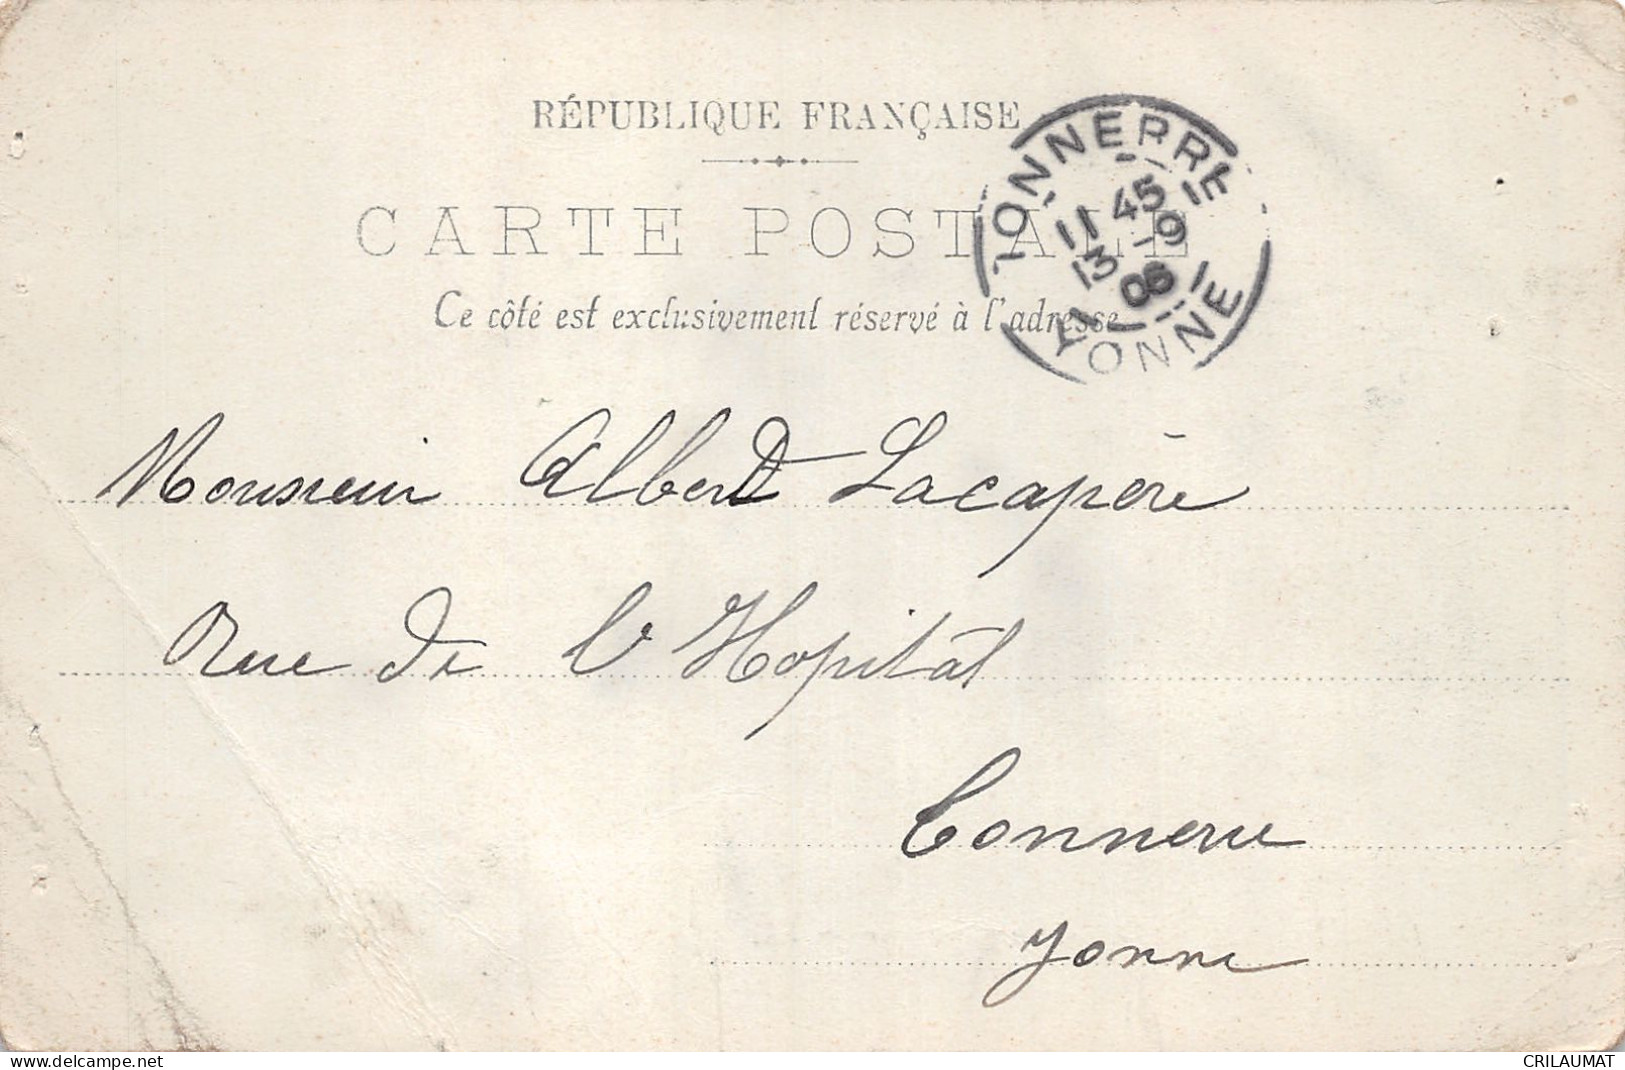 RÉPUBLIQUE FRANÇAISE
CARTE POSTALE
Ce côté est exclusivement réservé à l'adresse
TONNERRE
11 45
13 -9
06
YONNE
Monsieur Albert Lacapère
Rue de l'Hopitâl
Tonnerre
Yonne
www.delcampe.net
CRILAUMAT